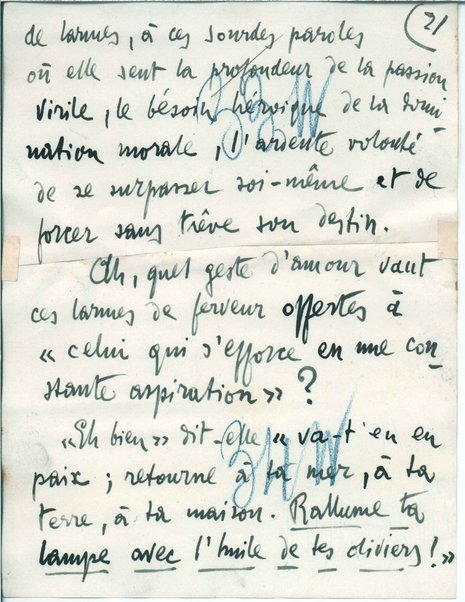 21
de larmes, à ces sourdes paroles
où elle sent la profondeur de la passion
virile, le bésoin héroïque de la domi-
nation morale, l'ardente volonté
de se surpasser soi-même et de
forcer sans trêve son destin.
Ah, quel geste d'amour vaut
ces larmes de ferveur offertes à
« celui qui s'efforce en une con-
stante aspiration » ?
«Eh bien» dit-elle « va-t'en en
paix ; retourne à ta mer, à ta
terre, à ta maison. Rallume ta
lampe avec l'huile de tes oliviers ! »